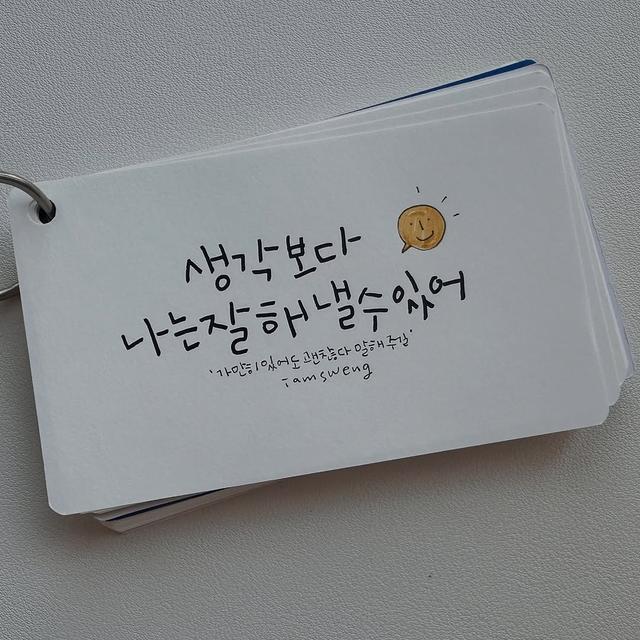 생각보다
나는잘해낼수있어
'가만히있어도괜찮다 말해주길'
iamsweng